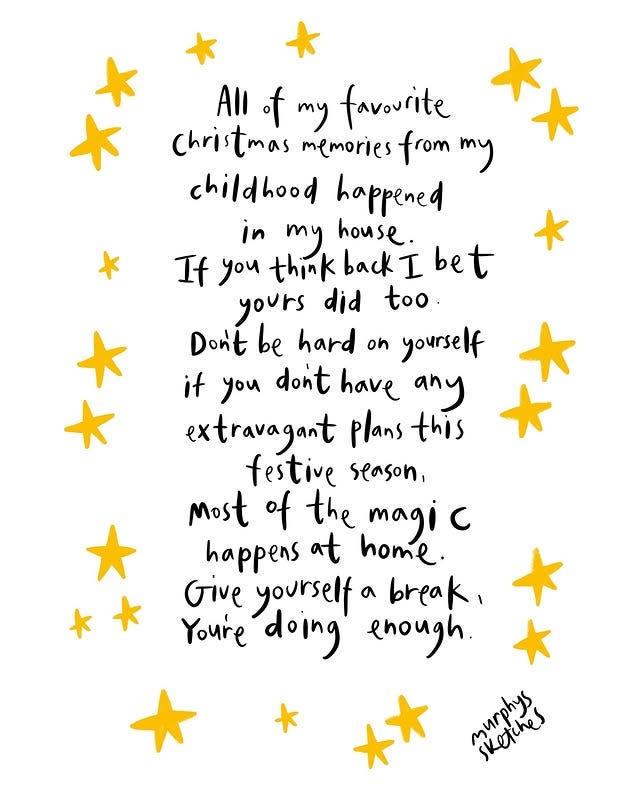 All of my favourite
Christmas memories from my
childhood happened
in my house.
If you think back I bet
yours did too.
Don't be hard on yourself
if you don't have any
extravagant plans this
festive season,
Most of the magic
happens at home.
Give yourself a break,
You're doing enough.
murphys
sketches